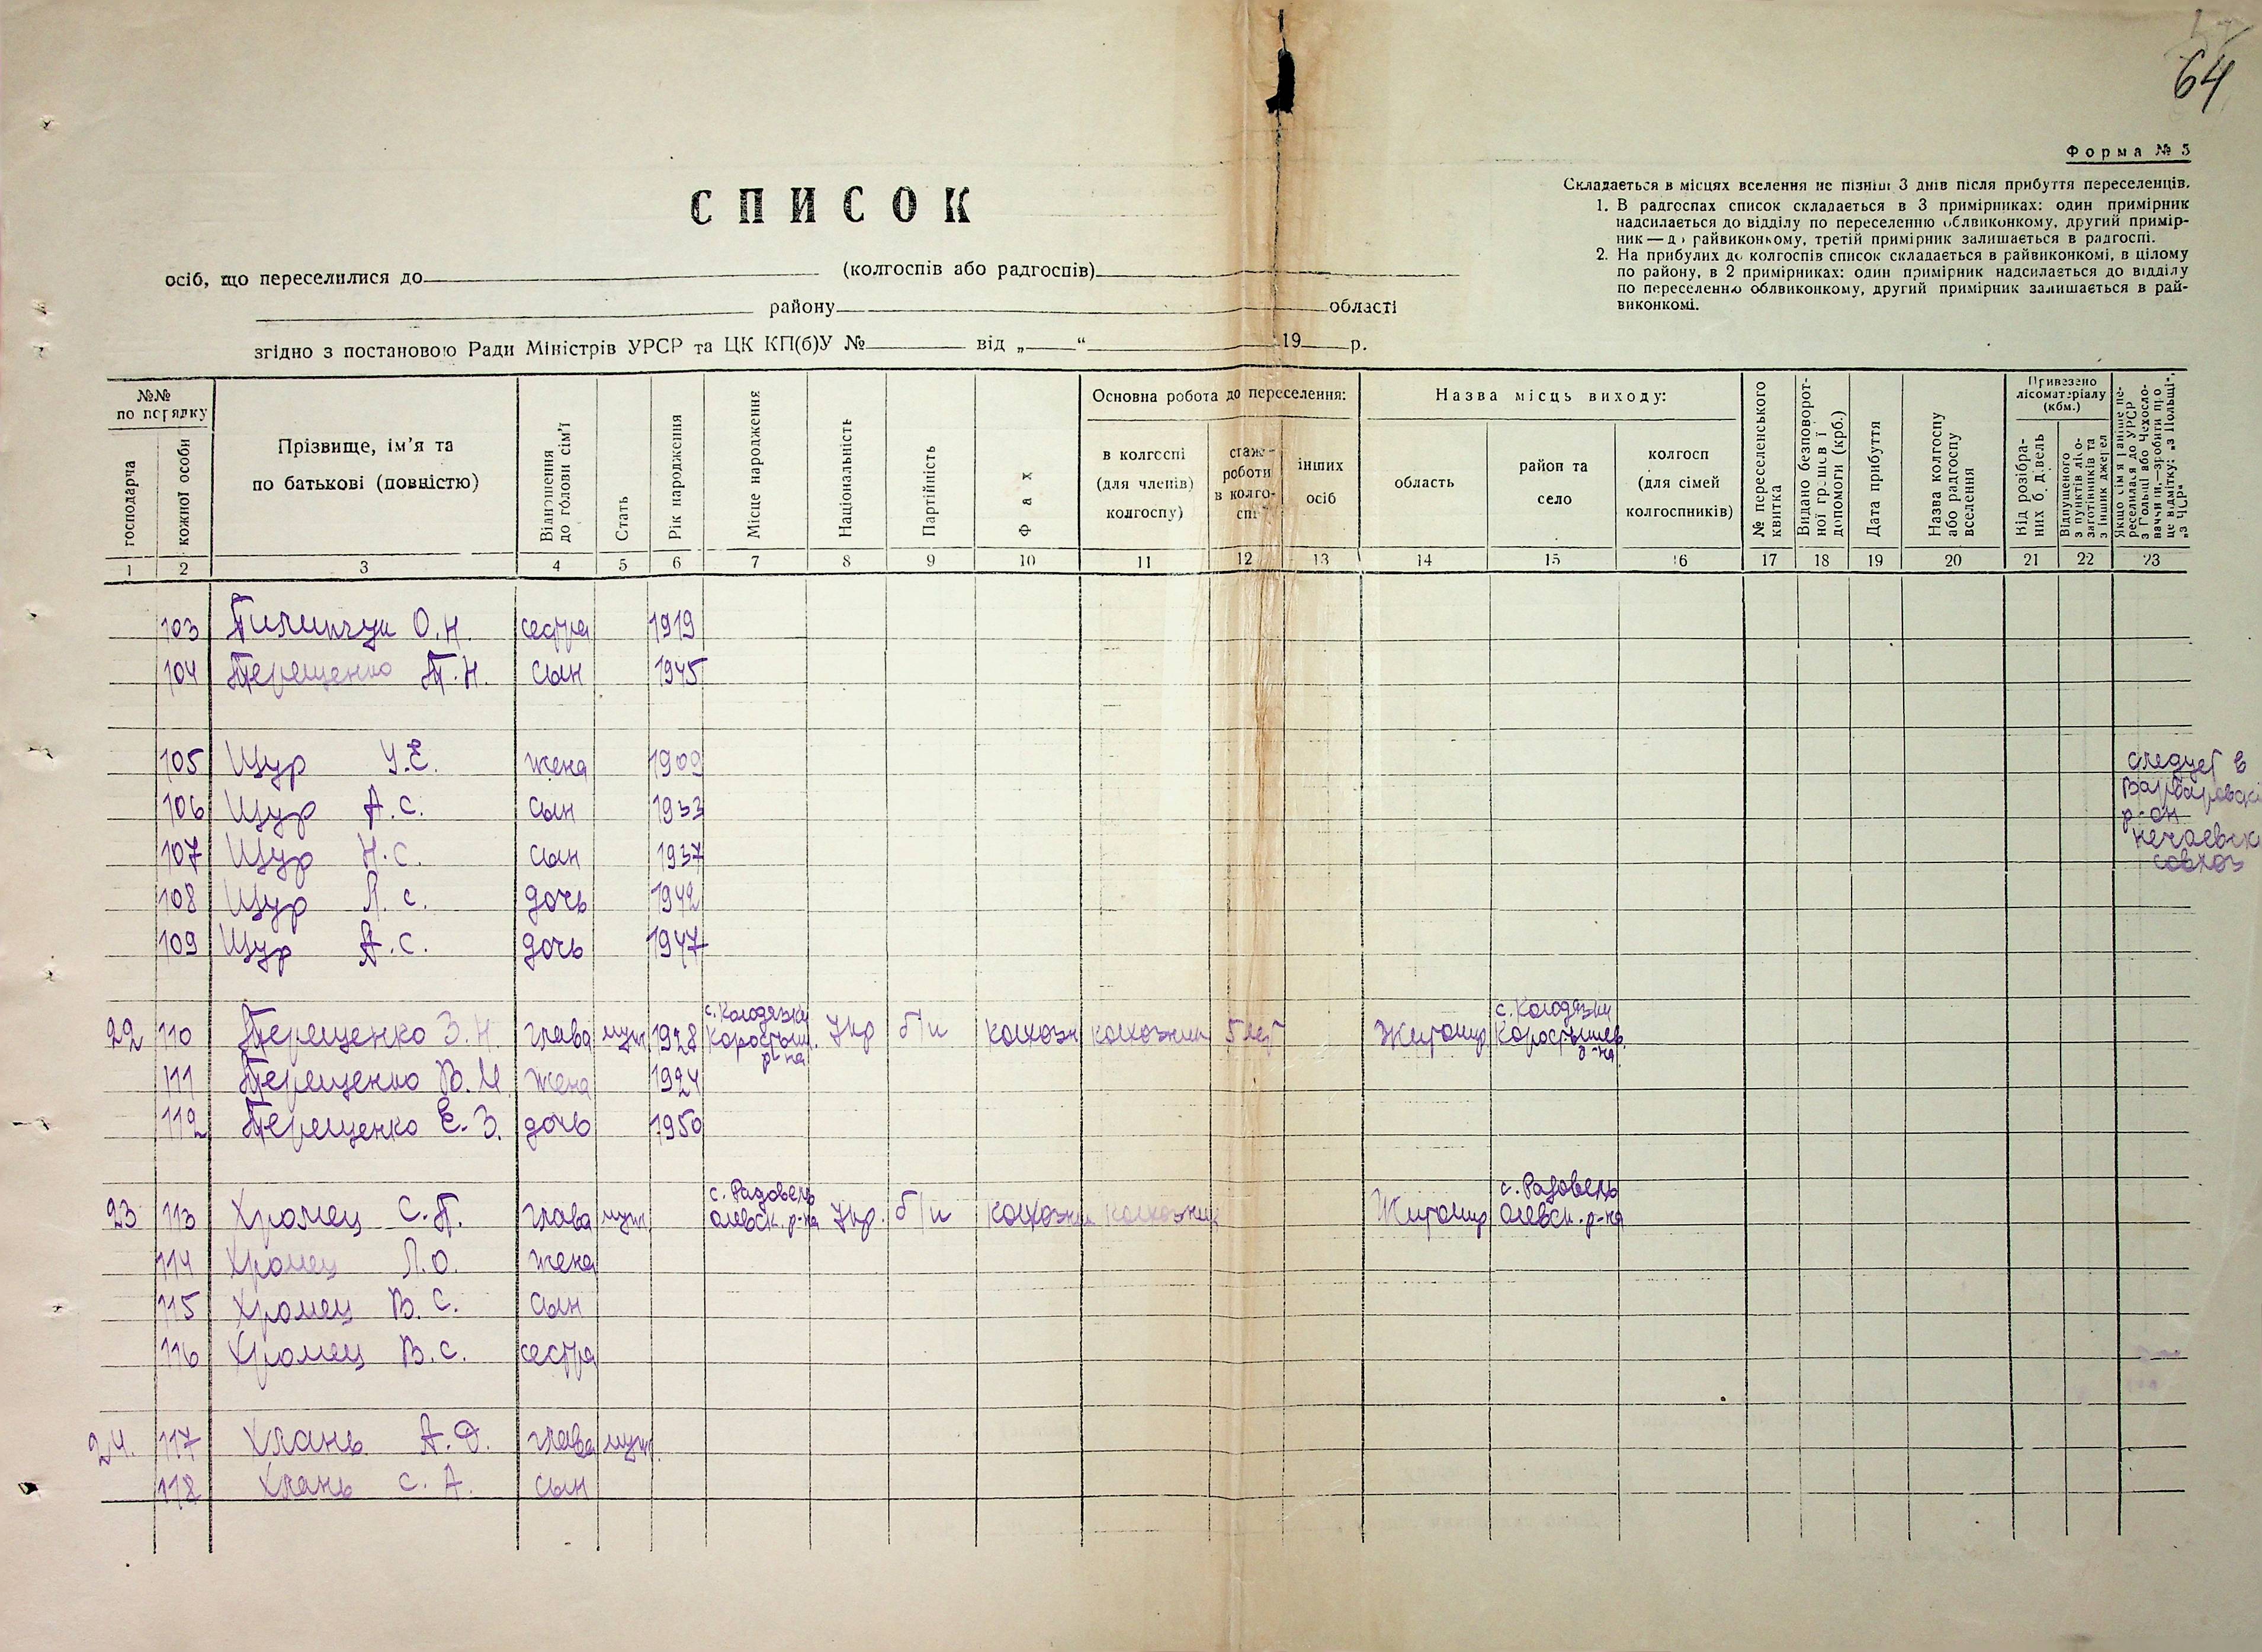 64
Форма № 5
СПИСОК
осіб, що переселилися до (колгоспів або радгоспів)
району області
згідно з постановою Ради Міністрів УРСР та ЦК КП(б)У № від „ “ 19 р.
Складається в місцях вселення не пізніш 3 днів після прибуття переселенців.
1. В радгоспах список складається в 3 примірниках: один примірник
надсилається до відділу по переселенню облвиконкому, другий примір-
ник — до райвиконкому, третій примірник залишається в радгоспі.
2. На прибулих до колгоспів список складається в райвиконкомі, в цілому
по району, в 2 примірниках: один примірник надсилається до відділу
по переселенню облвиконкому, другий примірник залишається в рай-
виконкомі.
№№ по порядку
господарча
кожної особи
Прізвище, ім’я та
по батькові (повністю)
Відношення
до голови сім’ї
Стать
Рік народження
Місце народження
Національність
Партійність
Фах
Основна робота до переселення:
в колгоспі
(для членів)
колгоспу)
стаж
роботи
в колго-
спі
інших
осіб
Назва місць виходу:
область
район та
село
колгосп
(для сімей
колгоспників)
№ переселенського
квитка
Видано безповорот-
ної грошев ї
допомоги (крб.)
Дата прибуття
Назва колгоспу
або радгоспу
вселення
Привезено
лісоматеріалу
(кбм.)
Від розібра-
них будівель
Відпущеного
з пунктів лісо-
заготівників та
з інших джерел
Якщо сім’я раніше пе-
реселилася до УРСР
з Польщі або Чехосло-
ваччини,—зробити про
це відмітку: „з Польщі“,
„з ЧСР“
1 2 3 4 5 6 7 8 9 10 11 12 13 14 15 16 17 18 19 20 21 22 23
103 Пилипчук О.Н. сестра 1919
104 Терещенко П.Н. сын 1945
105 Щур У.Е. жена 1909 следует в
Варваровский
р-он
106 Щур А.С. сын 1933
107 Щур Н.С. сын 1937 нечаевск
совхоз
108 Щур Л.С. дочь 1942
109 Щур А.С. дочь 1947
22 110 Терещенко З.Н. глава муж 1928 с. Колодязки Коростыш. р-на Укр б/п колхозн колхозник 5 лет Житомир с. Колодязки Коростышев. р-на
111 Терещенко В.И. жена 1924
112 Терещенко Е.З. дочь 1950
23 113 Хромец С.П. глава муж. с. Радовель Олевск. р-на Укр. б/п колхозник колхозник Житомир с. Радовель Олевск. р-на
114 Хромец Л.О. жена
115 Хромец В.С. сын
116 Хромец В.С. сестра
24. 117 Хлань А.Ф. глава муж.
118 Хлань С.А. сын